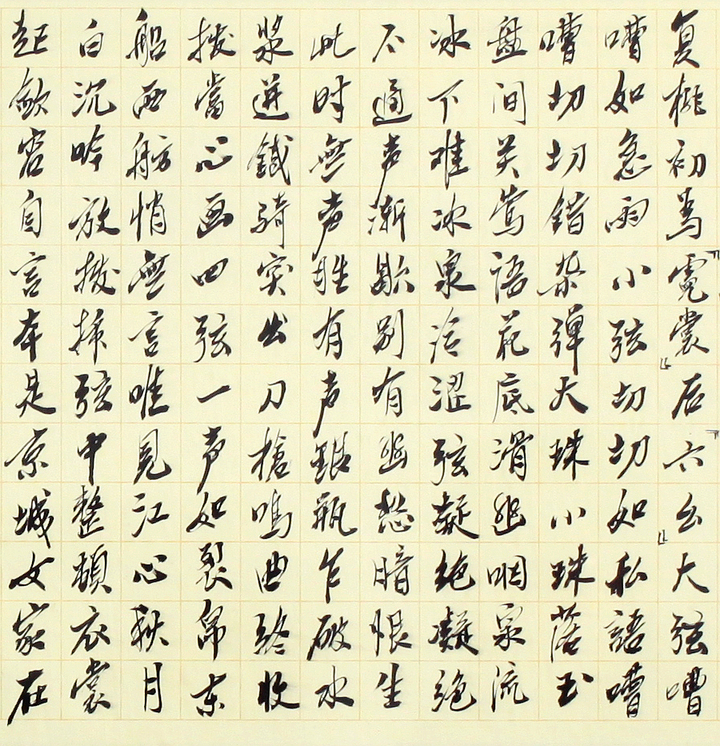 复挑初為「霓裳」后「六幺」大弦嘈
嘈如急雨小弦切切如私語嘈
嘈切切錯杂彈大珠小珠落玉
盤间关莺語花底滑幽咽泉流
冰下难冰泉冷涩弦凝绝凝绝
不通声渐歇别有幽愁暗恨生
此时無声胜有声銀瓶乍破水
浆迸鐵骑突出刀槍鸣曲终收
拨當心画四弦一声如裂帛东
船西舫悄無言唯見江心秋月
白沉吟放拨插弦中整顿衣裳
起敛容自言本是京城女家在